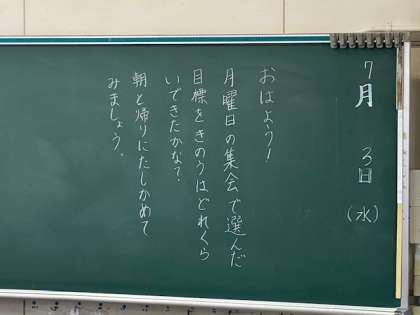 7月3日(水)
おはよう!
月曜日の集会で選んだ
目標をきのうはどれくら
いできたかな?
朝と帰りにたしかめて
みましょう.